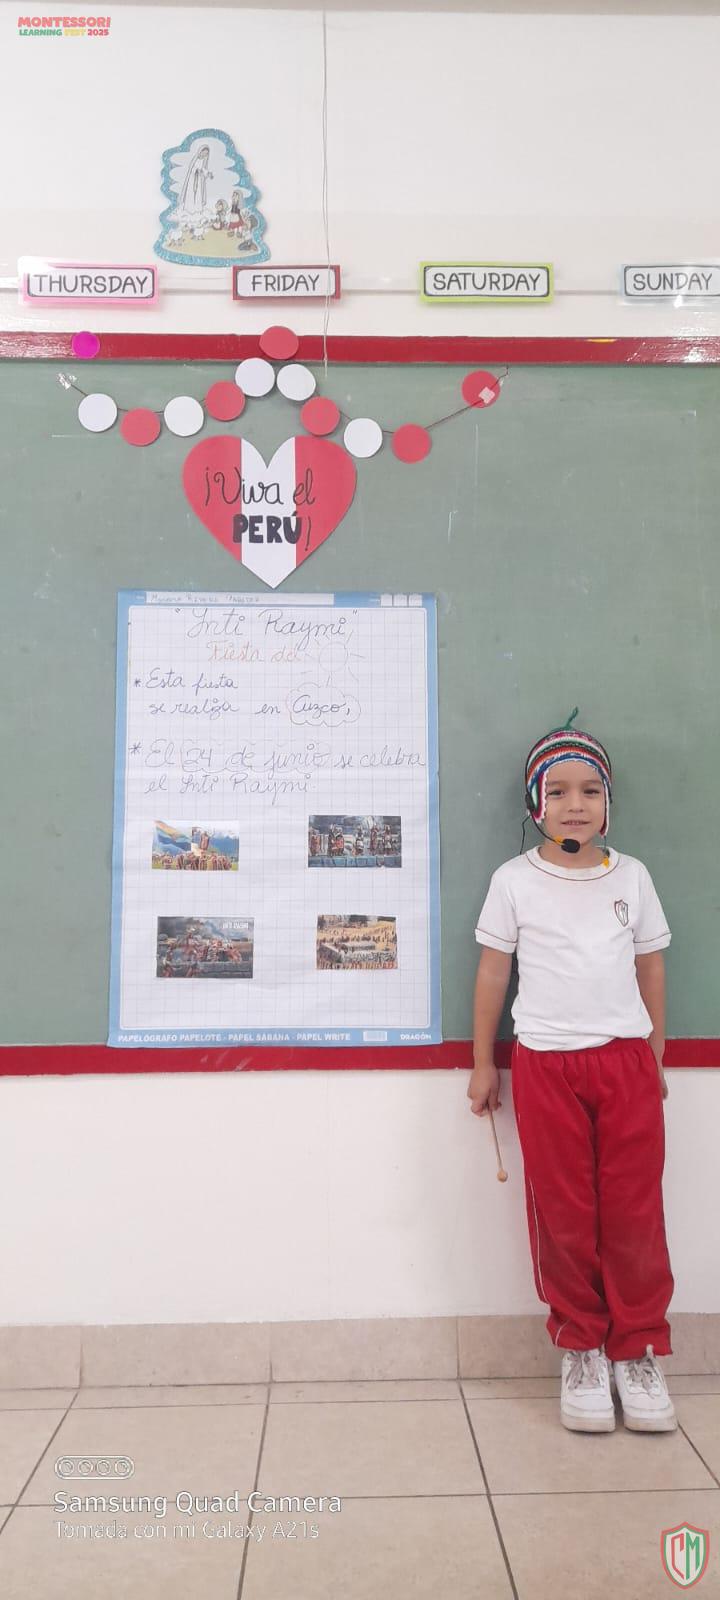 MONTESSORI
LEARNING FEST 2025
THURSDAY
FRIDAY
SATURDAY
SUNDAY
¡Viva el
PERÚ!
"Inti Raymi"
Fiesta del
* Esta fiesta
se realiza en Cuzco,
* El 24 de junio se celebra
el Inti Raymi.
INTI RAYMI
PAPELÓGRAFO PAPELOTE - PAPEL SABANA - PAPEL WRITE
DRAGÓN
CM
Samsung Quad Camera
Tomada con mi Galaxy A21s
CM